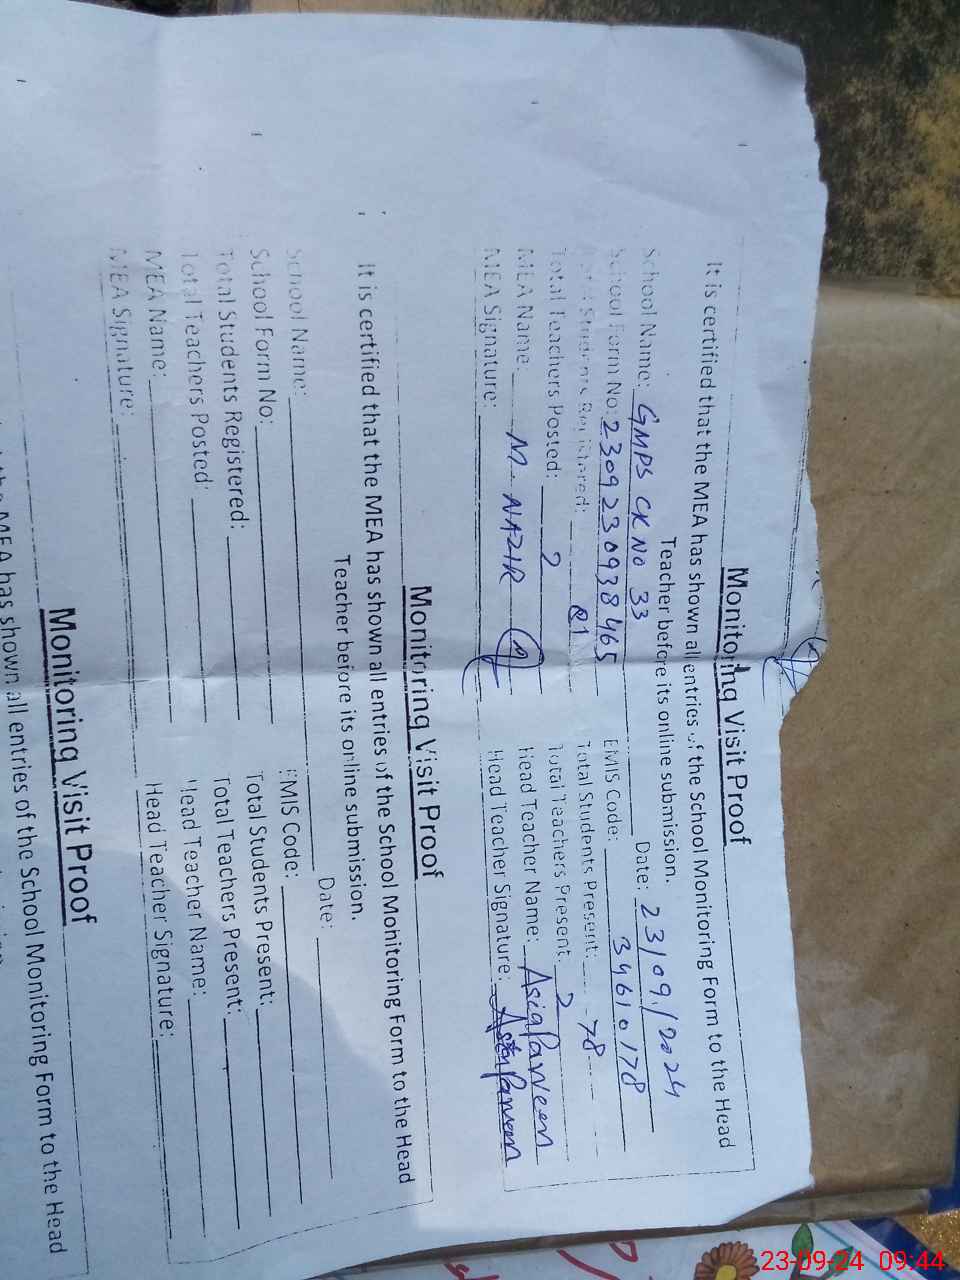 Monitoring Visit Proof
It is certified that the MEA has shown all entries of the School Monitoring Form to the Head
Teacher before its online submission.
School Name: GMPS CK NO 33 Date: 23/09/2024
School Form No: 2309230938465 EMIS Code: 34610178
Total Students Registered: 81 Total Students Present: 78
Total Teachers Posted: 2 Total Teachers Present: 2
MEA Name: M. NAZIR Head Teacher Name: Asia Parveen
MEA Signature: Head Teacher Signature: Asia Parveen
Monitoring Visit Proof
It is certified that the MEA has shown all entries of the School Monitoring Form to the Head
Teacher before its online submission.
School Name: Date:
School Form No: EMIS Code:
Total Students Registered: Total Students Present:
Total Teachers Posted: Total Teachers Present:
MEA Name: Head Teacher Name:
MEA Signature: Head Teacher Signature:
Monitoring Visit Proof
the MEA has shown all entries of the School Monitoring Form to the Head
23-09-24 09:44